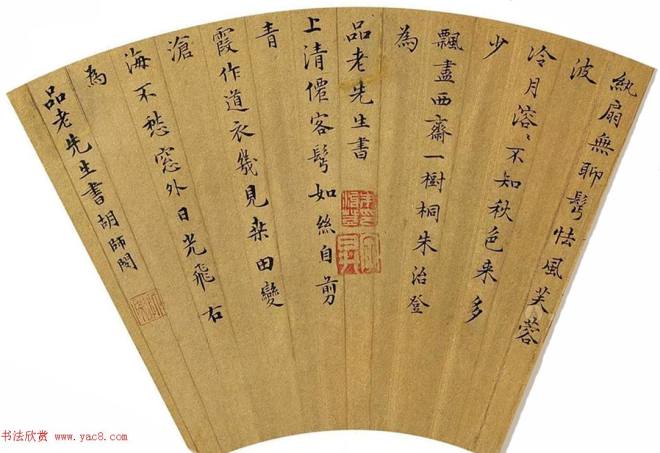 紈扇無聊鬢怯風芙蓉
波
冷月溶〻不知秋色来多
少
飄盡西齋一樹桐朱治登
為
品老先生書
上清僊客鬢如絲自剪
青
霞作道衣幾見桒田變
滄
海不愁窓外日光飛右
為
品老先生書胡師閎
书法欣赏 www.yac8.com